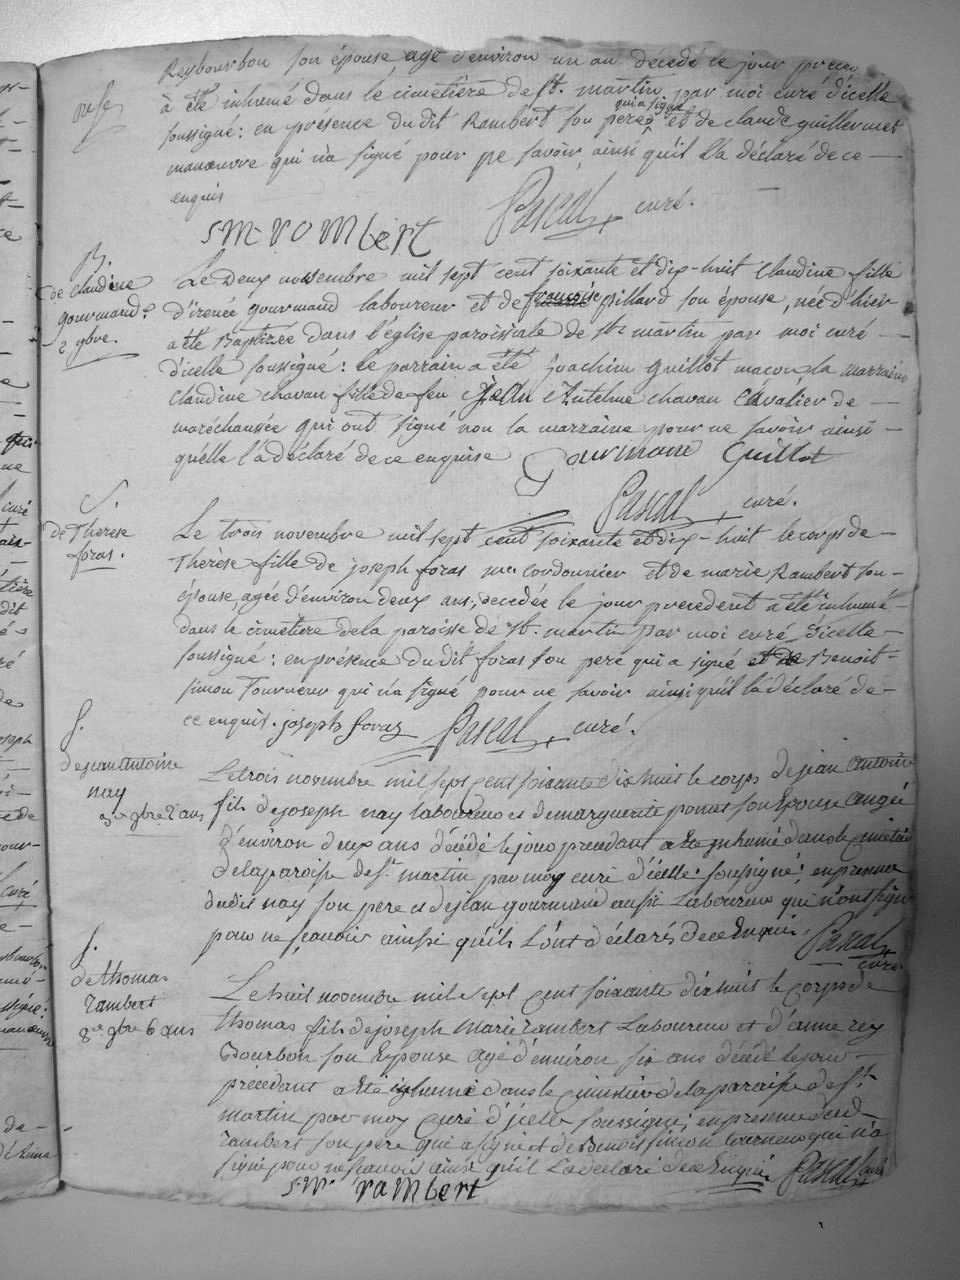 Reybourbon son épouse, agé d'environ un an décedé le jour preced
à été inhumé dans le cimetière de St. martin par moi curé d'icelle
qui a signé
soussigné: en présence dudit Rambert son pere et de claude guillermet
manœuvre qui n'a signé pour ne savoir, ainsi qu'il l'a déclaré de ce
enquis
Pascal curé.
S M rambert
B.
de Claudine
gourmand.
2 9bre.
Le Deux novembre mil sept cent soixante et dix-huit Claudine fille
d'irenée gourmand laboureur et de françoise pillard son épouse, née d'hier
a été Baptizée dans l'église paroissiale de St. martin par moi curé
d'icelle soussigné: le parrain a été Joachim Guillot macon la marraine
Claudine chavan fille de feu Jean Antelme chavan Cavalier de
maréchaussée qui ont signé non la marraine pour ne savoir ainsi
qu'elle l'a déclaré de ce enquise Gourmand Guillot
Pascal, curé.
S.
de Therese
foras.
Le trois novembre mil sept cent soixante et dix-huit le corps de
Thérèse fille de joseph foras me. Cordonnier et de marie Rambert son
épouse, agée d'environ deux ans, decedée le jour precedent a été inhumé
dans le cimetière de la paroisse de St. martin par moi curé d'icelle
soussigné: en présence du dit foras son pere qui a signé et de Benoit
simon Tourneur qui n'a signé pour ne savoir ainsi qu'il l'a déclaré de
ce enquis. joseph foraz Pascal curé.
S.
de jean antoine
nay
3e 9bre 2 ans
Le trois novembre mil sept cent soixante dix huit le corps de jean Antoine
fils de joseph nay laboureur et de marguerite ponet son Epouse augé
d'environ deux ans décédé le jour precedant a été inhumé dans le cimetiere
de la paroisse de St. martin par moy curé d'icelle soussigné: en presence
dudit nay son pere et de jean gourmand aussi Laboureur qui n'ont signé
pour ne scavoir ainsi qu'ils l'ont déclarés de ce Enquis. Pascal
curé
S.
de thomas
rambert
8e 9bre 6 ans
Le huit novembre mil sept cent soixante dix huit le corps de
thomas fils de joseph Marie rambert Laboureur et d'anne rey
Bourbon son Epouse agé d'environ six ans décédé le jour
précedant a été inhumé dans le cimetiere de la paroisse de St.
martin par moy curé d'icelle soussigné, en presence dud.
rambert son pere qui a signé et de Benoit simon tourneur qui n'a
signé pour ne scavoir ainsi qu'il L'a declaré de ce Enquis Pascal curé
S.M. rambert